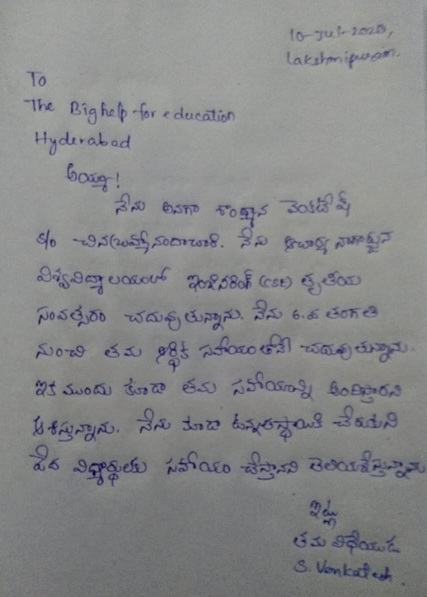 10-Jul-2020,
Lakshmipuram.
To
The Bighelp for education
Hyderabad
అయ్యా!
నేను అనగా వెంకటేష్
S/o నేను ఆచార్య నాగార్జున
విశ్వవిద్యాలయంలో ఇంజినీరింగ్ (CSE) తృతీయ
సంవత్సరం చదువుతున్నాను. నేను 6వ తరగతి
నుంచి తమ ఆర్థిక సహాయంతోనే చదువుతున్నాను.
ఇక ముందు కూడా తమ సహాయాన్ని అందిస్తారని
ఆశిస్తున్నాను. నేను కూడా ఉన్నతస్థాయికి చేరుకుని
పేద విద్యార్థులకు సహాయం చేస్తానని తెలియజేస్తున్నాను
ఇట్లు
తమ విధేయుడు
S. Venkatesh.